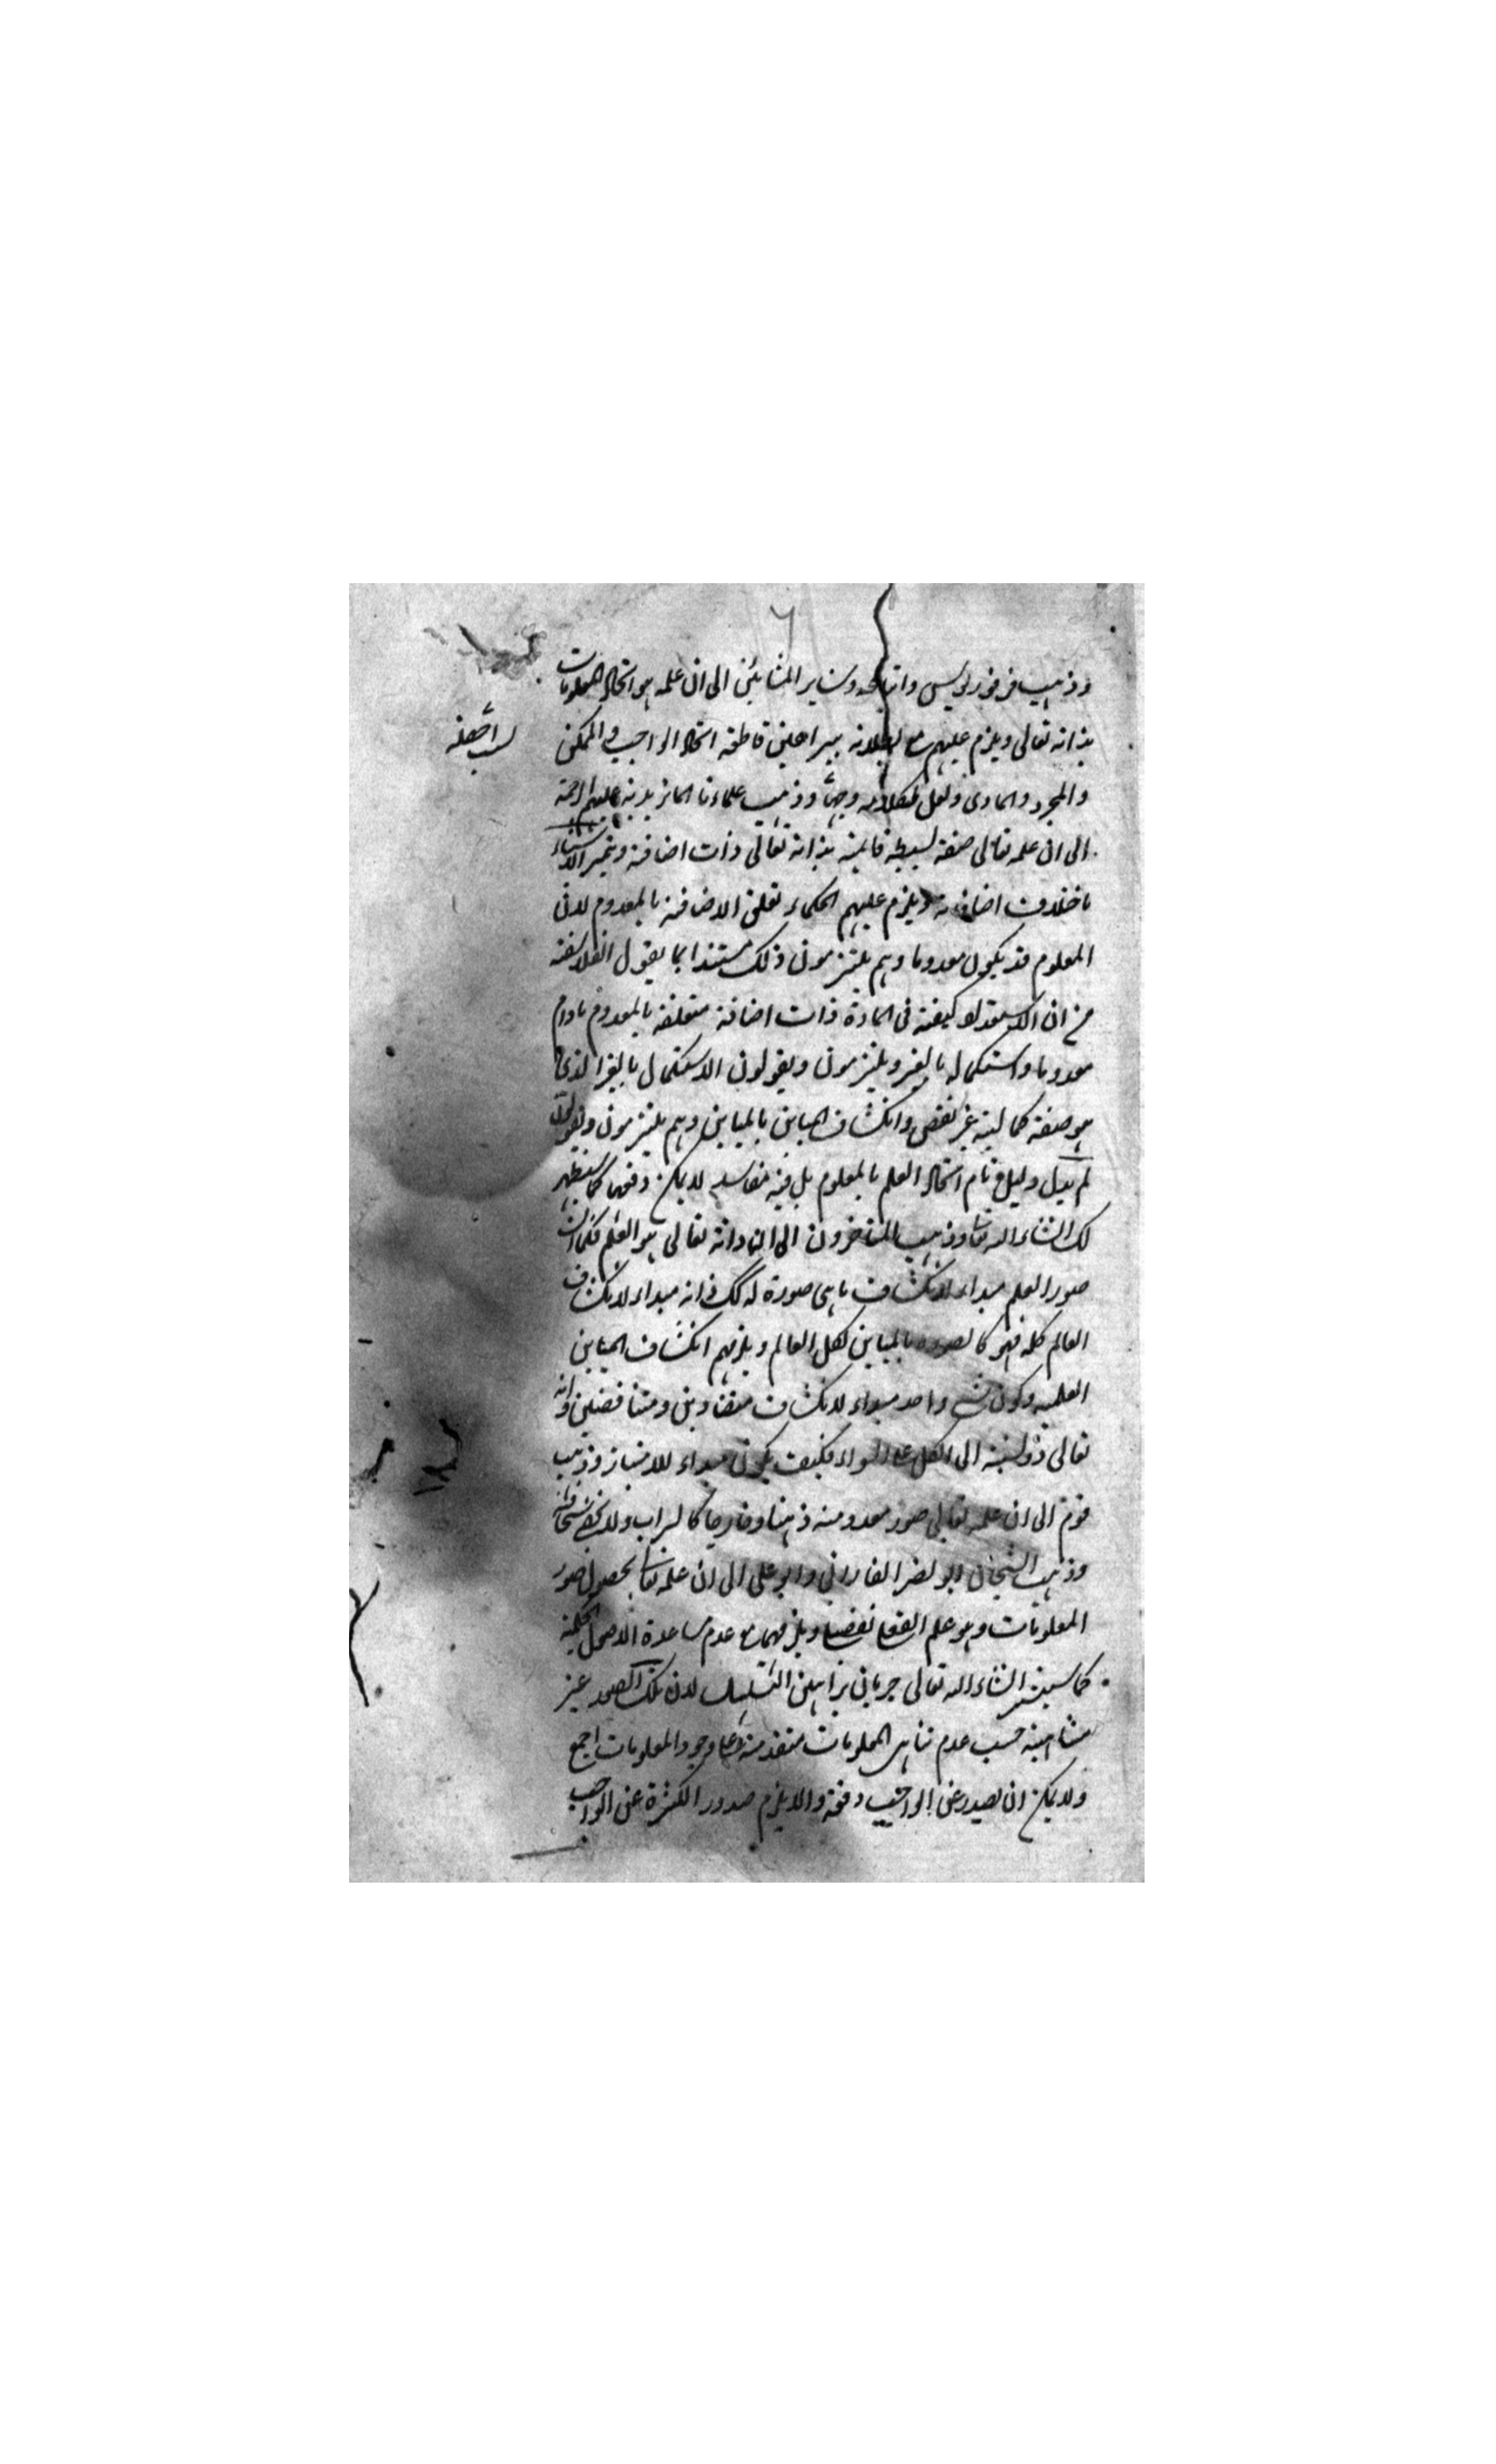 ٦
وذهب فرفوريوس واتباعه وساير المشائين الى ان علمه هو اتحاد المعلومات
بذاته تعالى ويلزم عليهم مع بطلانه ببراهين قاطعة اتحاد الواجب والممكن
والمجرد والمادى ولعل لكلامه وجها وذهب علماءنا الماتريدية عليهم الرحمة
الى ان علمه تعالى صفة بسيطة قائمة بذاته تعالى ذات اضافة ويتميز الاشياء
باختلاف اضافاته ويلزم عليهم الحكماء تعلق الاضافة بالمعدوم لان
المعلوم قد يكون معدوما وهم يلتزمون ذلك مستندا بما يقول الفلاسفة
من ان الاستعداد كيفية فى المادة ذات اضافة متعلقة بالمعدوم مادام
معدوما واستكماله بالغير ويلتزمون ويقولون الاستكمال بالغير الذى
هو صفة كمالية غير نقص وانكشاف المباين بالمباين وهم يلتزمون ويقولون
لم يقم دليل تام اتحاد العلم بالمعلوم بل فيه مفاسد لا يمكن دفعها كما سيظهر
لك انشاء الله تعالى وذهب المتاخرون الى ان ذاته تعالى هو العلم فكما ان
صور العلم مبداء لانكشاف ما هى صورة له كك ذاته مبداء لانكشاف
العالم كله فهو كالصورة بالمباين لكل العالم ويلزمهم انكشاف المباين
العلمية وكون شئ واحد مبداء لانكشاف متضادين ومتناقضين وانه
تعالى ذو نسبة الى الكل على السواء فكيف يكون مبداء للامتياز وذهب
قوم الى ان علمه تعالى صور معدومة ذهنا وخارجا كالسراب ولا يخفى سخافته
وذهب الشيخان ابو نصر الفارابى وابو على الى ان علمه تعالى بحصول صور
المعلومات وهو علم الفعلى تفصيلا ويلزمهما مع عدم مساعدة الاصول الحكمية
كما سيتبين انشاء الله تعالى جريان براهين التسلسل لان تلك الصور غير
متناهية حسب عدم تناهى المعلومات متقدمة على وجود المعلومات اجمع
ولا يمكن ان يصدر عن الواجب دفعة والا يلزم صدور الكثرة عن الواجب